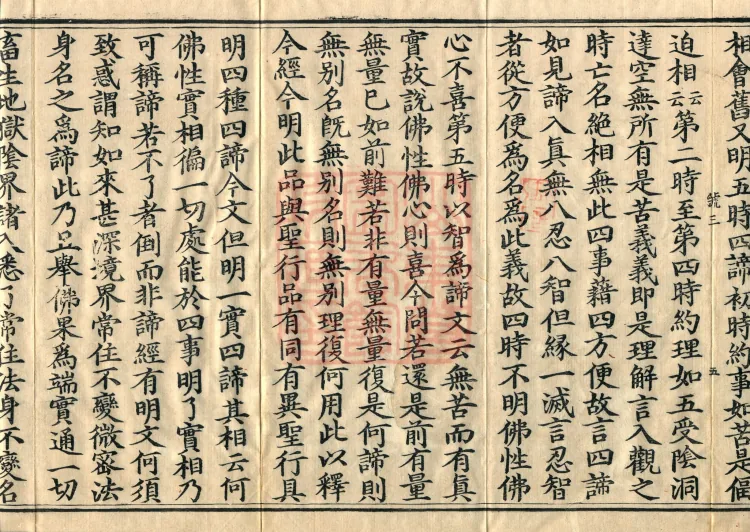 相會舊又明五時四諦初時約事如苦是偪
迫相云云第二時至第四時約理如五受陰洞
達空無所有是苦義義即是理解言入觀之
時亡名絶相無此四事藉四方便故言四諦
如見諦入真無八忍八智但緣一滅言忍智
者從方便為名為此義故四時不明佛性佛
心不喜第五時以智為諦文云無苦而有真
實故說佛性佛心則喜今問若還是前有量
無量已如前難若非有量無量復是何諦則
無別名旣無別名則無別理復何用此以釋
今經今明此品與聖行品有同有異聖行具
明四種四諦今文但明一實四諦其相云何
佛性實相徧一切處能於四事明了實相乃
可稱諦若不了者倒而非諦經有明文何須
致惑謂知如來甚深境界常住不變微密法
身名之為諦此乃且舉佛果為端實通一切
畜生地獄陰界諸入悉了常住法身不變名
號三
五